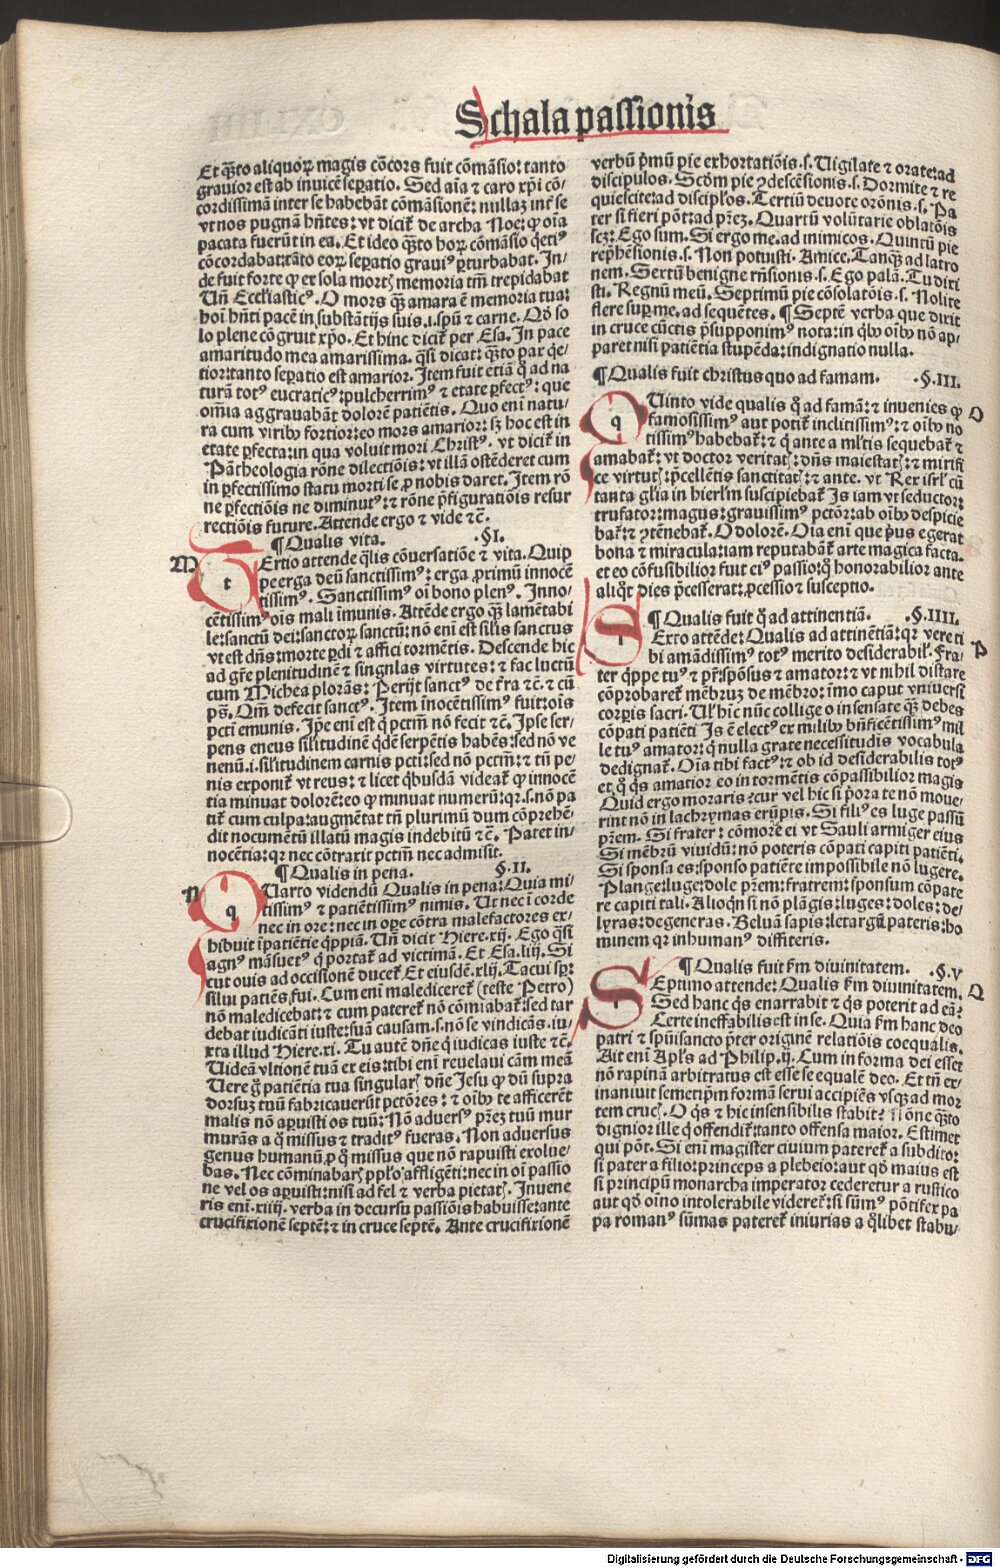 Schala passionis
Et q̃to aliquoꝝ magis cõcors fuit cõmãsio: tanto
grauior est ab inuicẽ seꝑatio. Sed aĩa ⁊ caro xp̃i cõ/
cordissimã inter se habebãt cõmãsionẽ: nullaꝫ inť se
vt nos pugnã hñtes: vt diciť de archa Noe: ꝙ oĩa
pacata fuerũt in ea. Et ideo q̃to hoꝝ cõmãsio q̃etiꝰ
cõcordabat: tãto eoꝝ seꝑatio grauiꝰ ꝑturbabat. In/
de fuit forte ꝙ ex sola mortꝭ memoria tm̃ trepidabat
Uñ Eccɫiasticꝰ. O mors q̃ꝫ amara ẽ memoria tua:
hoĩ hñti pacẽ in substãtijs suis .i. spũ ⁊ carne. Qõ so
lo plene cõgruit xp̃o. Et hinc diciť per Esa. In pace
amaritudo mea amarissima. q̃si dicat: q̃to pax q̃e/
tior: tanto seꝑatio est amarior. Item fuit etiã q̊ ad na
turã totꝰ eucraticꝰ: pulcherrimꝰ ⁊ etate ꝑfectꝰ: que
om̃ia aggrauabãt dolorẽ patiẽtis. Quo eni natu/
ra cum viribꝰ fortior: eo mors amarior: sꝫ hoc est in
etate ꝑfecta: in qua voluit mori Christꝰ. vt diciť in
Pãtheologia rõne dilectiõis: vt illã ostẽderet cum
in ꝑfectissimo statu morti se ꝓ nobis daret. Item rõ
ne ꝑfectiõis ne diminutꝰ: ⁊ rõne p̃figuratiõis resur
rectiõis future. Attende ergo ⁊ vide ⁊c̃.
¶ Qualis vita. .§I.
M
t
Ertio attende q̃lis cõuersatiõe ⁊ vita. Quip
pe erga deũ sanctissimꝰ: erga ꝓximũ innocẽ
tissimꝰ. Sanctissimꝰ oĩ bono plenꝰ. Inno/
cẽtissimꝰ oĩs mali ĩmunis. Attẽde ergo q̃ꝫ lamẽtabi
le: sanctũ dei: sanctoꝝ sanctũ: nõ eni est siɫis sanctus
vt est dñs: morte ꝑdi ⁊ affici tormẽtis. Descende hic
ad grẽ plenitudinẽ ⁊ singulas virtutes: ⁊ fac luctũ
cum Michea plorãs: Perijt sanctꝰ de ťra ⁊c̃. ⁊ cũ
pš. Qm̃ defecit sanctꝰ. Item ĩnocẽtissimꝰ fuit: oĩs
pcti emunis. Ip̃e eni est q̊ pctm̃ nõ fecit ⁊c̃. Ipse ser/
pens eneus siɫitudinẽ q̃dẽ serpẽtis habẽs: sed nõ ve
nenũ .i. siɫitudinem carnis pcti: sed nõ pctm̃: ⁊ tñ pe/
nis exponiť vt reus: ⁊ licet q̊busdã videať ꝙ innocẽ
tia minuat dolorẽ: eo ꝙ minuat numerũ: qꝛ .s. nõ pa
tiť cum culpa: augmẽtat tñ plurimũ dum cõprehẽ/
dit nocumẽtũ illatũ magis indebitũ ⁊c̃. Patet in/
nocẽtia: qꝛ nec cõtraxit pctm̃ nec admisit.
¶ Qualis in pena. §.II.
N
q
Uarto videndũ Qualis in pena: Quia mi/
tissimꝰ ⁊ patiẽtissimꝰ nimis. Ut nec ĩ corde
nec in ore: nec in oꝑe cõtra malefactores ex/
hibuit ĩpatiẽtie q̊ppiã. Uñ dicit Hiere.xij. Ego q̃si
agnꝰ mãsuetꝰ q̊ portať ad victimã. Et Esa.liij. Si
cut ouis ad occisionẽ duceť. Et eiusdẽ.xlij. Tacui sp̃:
silui patiẽs fui. Cum eni maledicereť (teste Petro)
nõ maledicebat: ⁊ cum patereť nõ cõmiabať: sed tar
debat iudicãti iuste: suã causam .s. nõ se vindicãs. iu/
xta illud Hiere.xi. Tu autẽ dñe q̊ iudicas iuste ⁊c̃.
Uideã vltionẽ tuã ex eis: tibi eni reuelaui cãm meã
Uere g̊ patiẽtia tua singularꝭ dñe Jesu ꝙ dũ supra
dorsuꝫ tuũ fabricauerũt pctõres: ⁊ oĩbꝰ te afficerẽt
malis nõ aꝑuisti os tuũ: Nõ aduersꝰ p̃rez tuũ mur
murãs a q̊ missus ⁊ traditꝰ fueras. Non aduersus
genus humanũ, ꝓ q̊ missus que nõ rapuisti exolue/
bas. Nec cõminabarꝭ pplo affligẽti: nec in oĩ passio
ne vel os aꝑuisti: nisi ad fel ⁊ verba pietatꝭ. Inuene
ris eni .xiiij. verba in decursu passiõis habuisse: ante
crucifixionẽ septẽ: ⁊ in cruce septẽ. Ante crucifixionẽ
verbũ p̃mũ pie exhortatiõis .s. Uigilate ⁊ orate: ad
discipulos. Scďm pie ꝯdescẽsionis .s. Dormite ⁊ re
quiescite: ad disciplos. Tertiũ deuote orõnis .s. Pa
ter si fieri põt: ad p̃rez. Quartũ volũtarie oblatõis
scꝫ: Ego sum. Si ergo me. ad inimicos. Quintũ pie
rep̃hẽsionis .s. Non potuisti. Amice. Tanq̃ꝫ ad latro
nem. Sextũ benigne rñsionis .s. Ego palã. Tu dixi
sti. Regnũ meũ. Septimũ pie cõsolatõis .s. Nolite
flere suꝑ me. ad sequẽtes. ¶ Septẽ verba que dixit
in cruce cũctis p̃supponimꝰ nota: in q̊bꝰ oĩbꝰ nõ ap/
paret nisi patiẽtia stupẽda: indignatio nulla.
¶ Qualis fuit christus quo ad famam. .§.III.
O
q
Uinto vide qualis q̊ ad famã: ⁊ inuenies ꝙ
famosissimꝰ aut potiꝰ inclitissimꝰ: ⁊ oĩbꝰ no
tissimꝰ habebať: ⁊ q̊ ante a ml̃tis sequebať ⁊
amabať: vt doctor veritatꝭ: dñs maiestatꝭ: ⁊ mirifi
ce virtutꝭ: p̃cellẽtis sanctitatꝭ: ⁊ ante. vt Rex isrɫ cũ
tanta gɫia in hierɫm suscipiebať Is iam vt seductor:
trufator: magus: grauissimꝰ pctõr: ab oĩbꝰ despicie
bať: ⁊ ꝯtẽnebať. O dolorẽ. Oĩa eni que p̃us egerat
bona ⁊ miracula: iam reputabãť arte magica facta.
et eo cõfusibilior fuit eiꝰ passio: q̊ honorabilior ante
aliq̊t dies p̃cesserat: ꝓcessio ⁊ susceptio.
¶ Qualis fuit q̊ ad attinentiã. .§.IIII.
P
Exto attẽde: Qualis ad attinẽtiã: qꝛ vere ti
bi amãdissimꝰ totꝰ merito desiderabiɫ. Fra/
ter q̊ppe tuꝰ ⁊ pr̃: spõsus ⁊ amator: ⁊ vt nihil distare
cõprobareť mẽbruꝫ de mẽbro: ĩmo caput vniuersi
corꝑis sacri. Uɫ hĩc nũc collige o insensate q̃ꝫ debes
cõpati patiẽti Is ẽ electꝰ ex milibꝰ bñficẽtissimꝰ mil
le tuꝰ amator: q̊ nulla grate necessitudis vocabula
dedignať. Oĩa tibi factꝰ: ⁊ ob id desiderabilis totꝰ
et q̊ q̊s amatior eo in tormẽtis cõpassibilior magis
Quid ergo moraris? cur vel hic si p̊ora te nõ moue/
rint nõ in lachrymas erũpis. Si filiꝰ es luge passũ
pr̃em. Si frater: cõmore ei vt Sauli armiger eius
Si mẽbrũ viuidũ: nõ poteris cõpati capiti patiẽti.
Si sponsa es: sponso patiẽte impossibile nõ lugere.
Plange: luge: dole pr̃em: fratrem: sponsum cõpate
re capiti tali. Alioq̊n si nõ plãgis: luges: doles: de/
lyras: degeneras. Beluã sapis: letargũ pateris: ho
minem qꝛ inhumanꝰ diffiteris.
¶ Qualis fuit ẜm diuinitatem. .§.V
Q
Eptimo attende: Qualis ẜm diuinitatem.
Sed hanc q̊s enarrabit ⁊ q̊s poterit ad eã?
Certe ineffabilis est in se. Quia ẜm hanc deo
patri ⁊ spũisancto p̃ter originẽ relatiõis coequalis.
Ait eni Apɫs ad Philip.ij. Cum in forma dei esset
nõ rapinã arbitratus est esse se equalẽ deo. Et tñ ex/
inaniuit semetip̃m formã serui accipiẽs vsqꝫ ad mor
tem crucꝭ. O q̊s ⁊ hic insensibilis stabit? Nõne q̃to
dignior ille q̊ offendiť: tanto offensa maior. Estimet
qui põt. Si eni magister ciuium patereť a subdito:
si pater a filio: princeps a plebeio: aut qõ maius est
si principũ monarcha imperator cederetur a rustico
aut qõ oĩno intolerabile videreť: si sũmꝰ põtifex pa
pa romanꝰ sũmas patereť iniurias a q̊libet stabu/
Digitalisierung gefördert durch die Deutsche Forschungsgemeinschaft - DFG